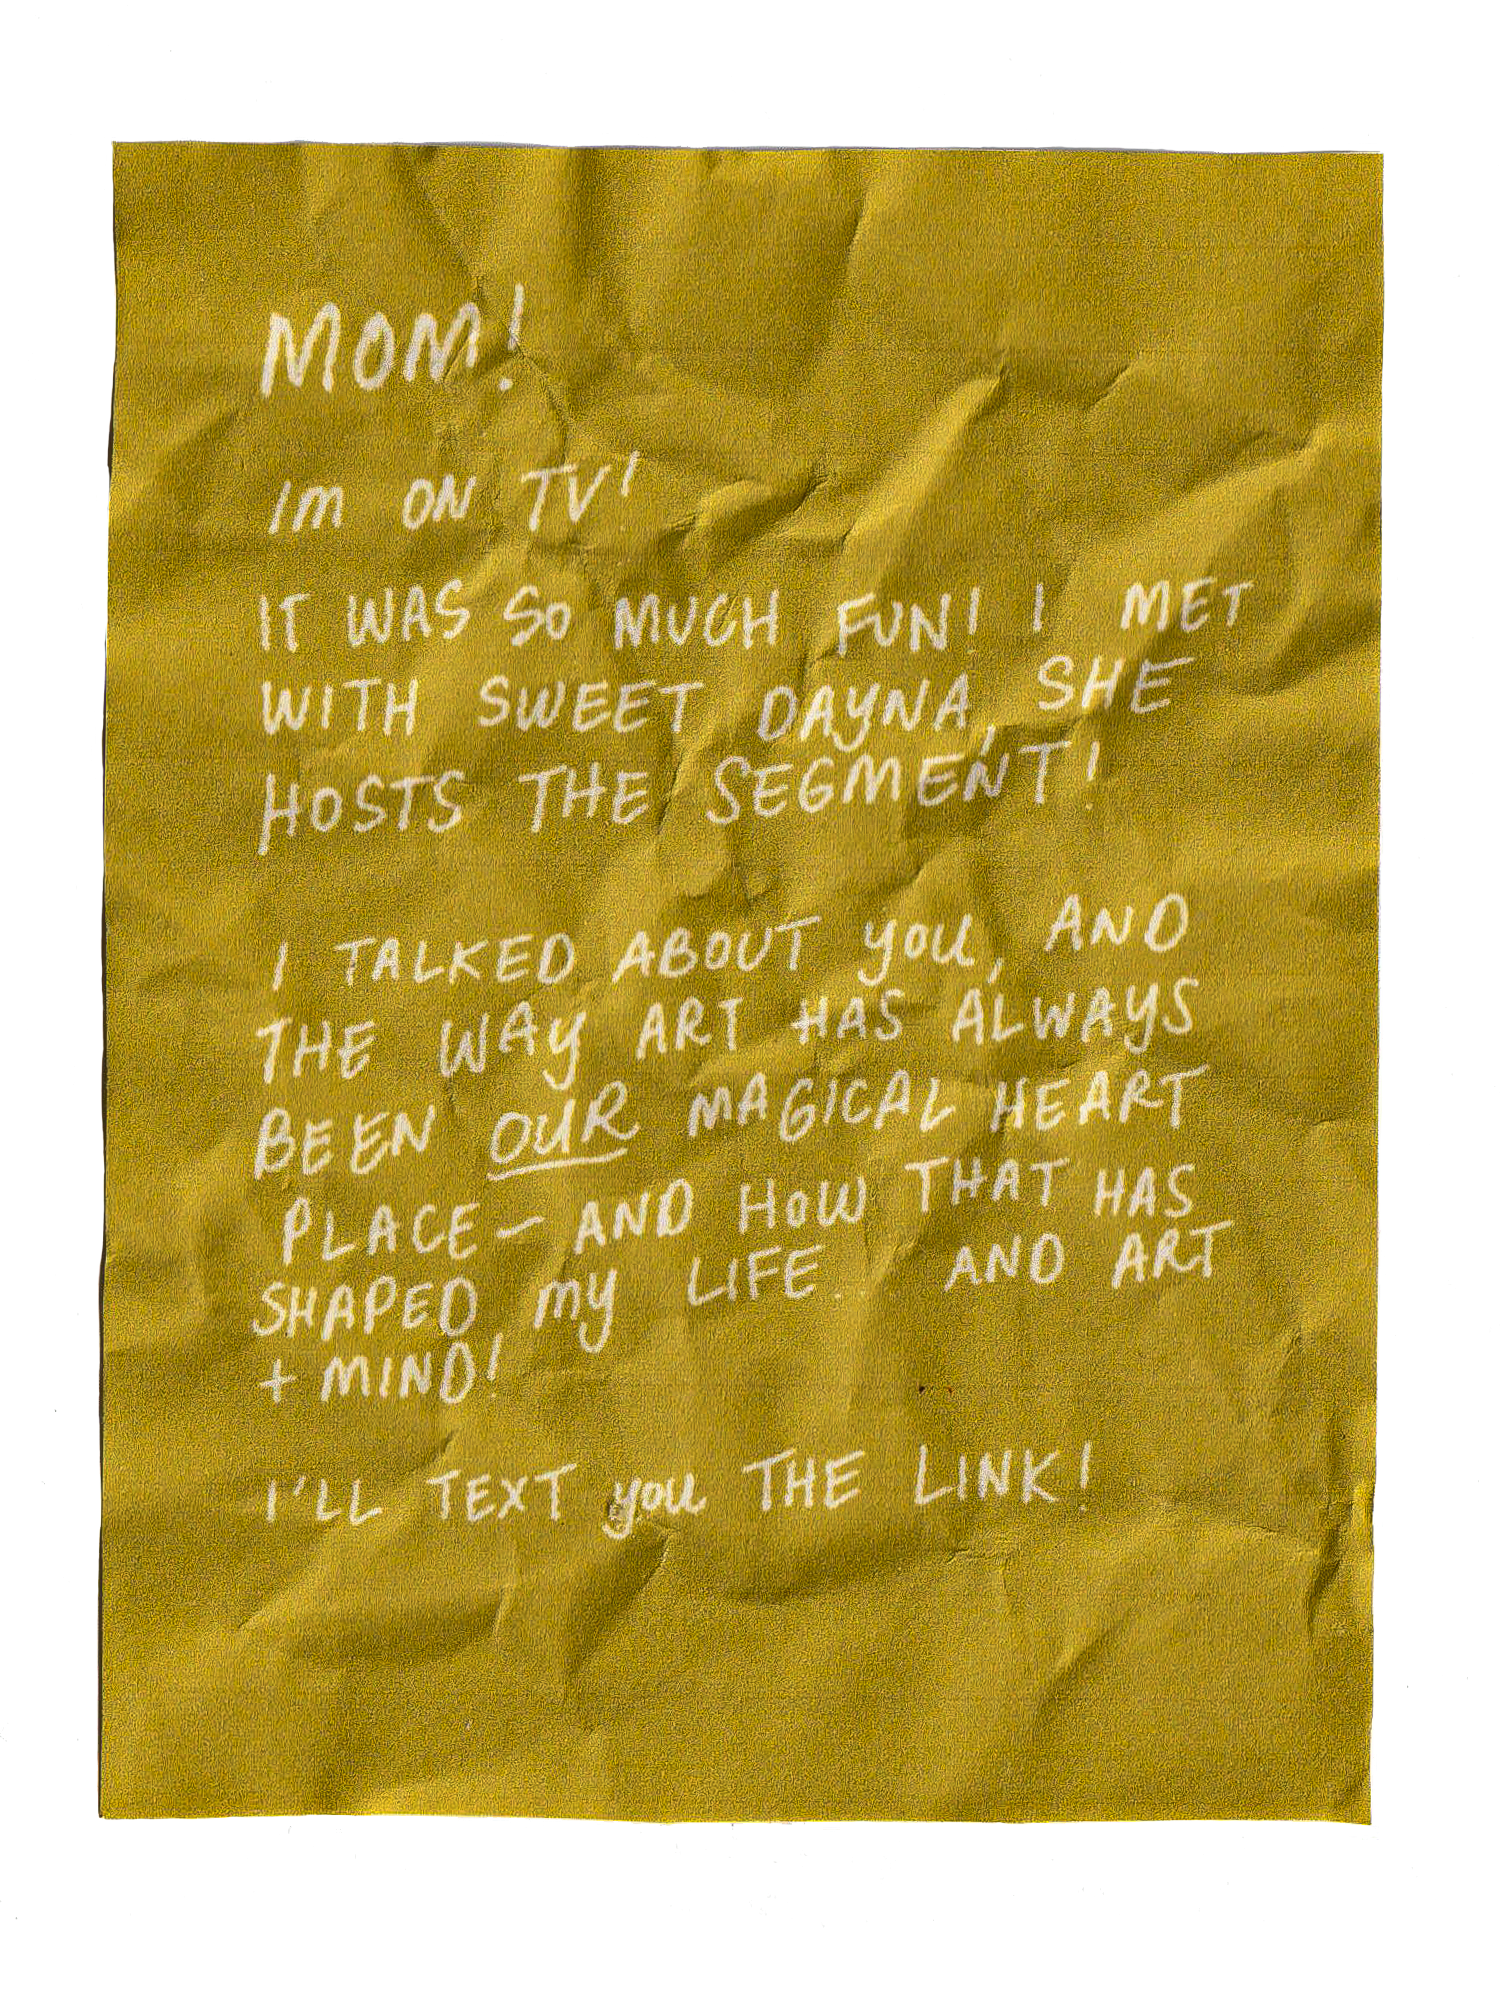 MOM!
Im ON TV!
IT WAS SO MUCH FUN! I MET
WITH SWEET DAYNA, SHE
HOSTS THE SEGMENT!
I TALKED ABOUT you, AND
THE WAY ART HAS ALWAYS
BEEN OUR MAGICAL HEART
PLACE - AND HOW THAT HAS
SHAPED my LIFE.. AND ART
+ MIND!
I'LL TEXT you THE LINK!